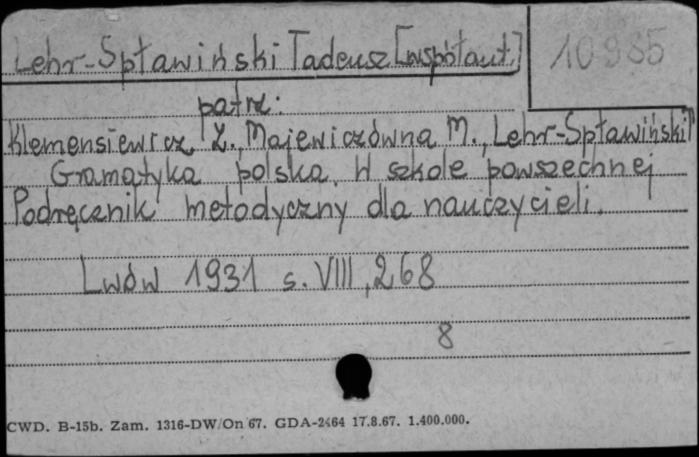 Lehr-Spławiński Tadeusz [współaut.]
10985
patrz:
Klemensiewicz Z., Majewiczówna M., Lehr-Spławiński T
Gramatyka polska w szkole powszechnej
Podręcznik metodyczny dla nauczycieli.
Lwów 1931 s. VIII, 268
8
CWD. B-15b. Zam. 1316-DW/On 67. GDA-2464 17.8.67. 1.400.000.